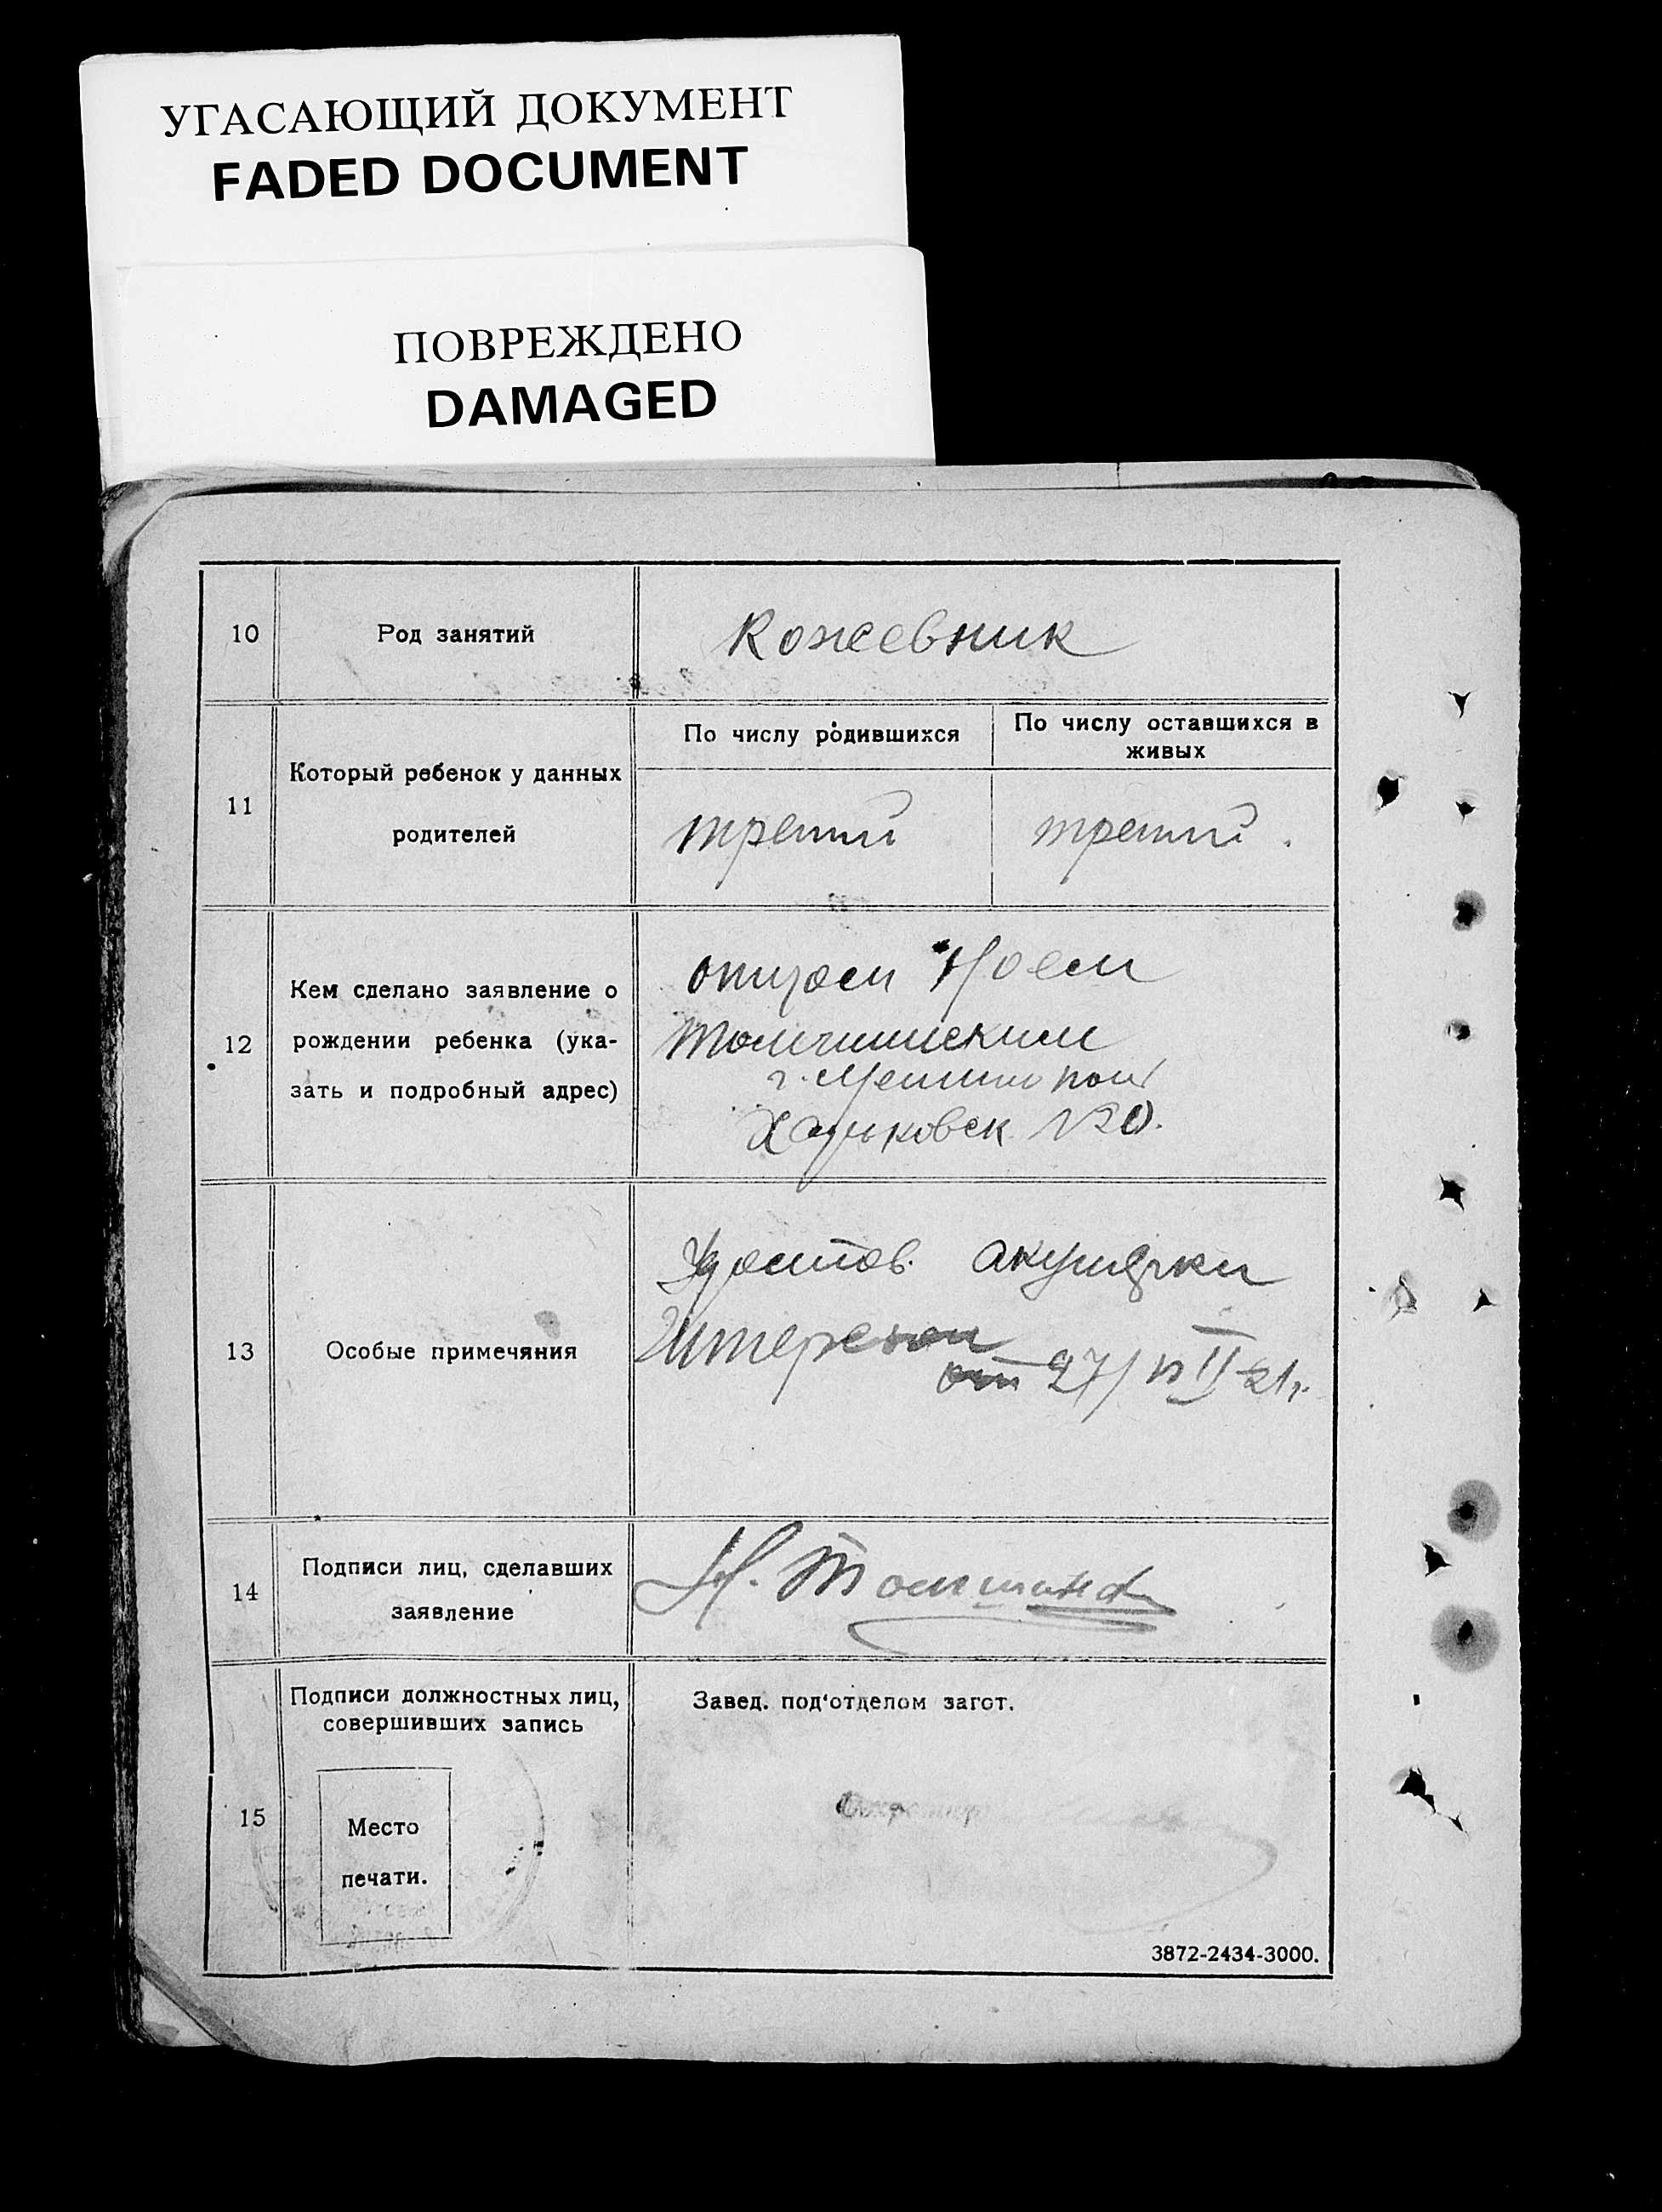 УГАСАЮЩИЙ ДОКУМЕНТ
FADED DOCUMENT
ПОВРЕЖДЕНО
DAMAGED
10
Род занятий
Кожевник
11
Который ребенок у данных
родителей
По числу родившихся
По числу оставшихся в
живых
третий
третий.
12
Кем сделано заявление о
рождении ребенка (ука-
зать и подробный адрес)
отцом Ноем
г. Мелитополь
Харьковск
13
Особые примечания
Удостов. акушерки
от 27/VII-21г.
14
Подписи лиц, сделавших
заявление
Н.
15
Подписи должностных лиц,
совершивших запись
Место
печати.
Завед. под'отделом загот.
3872-2434-3000.